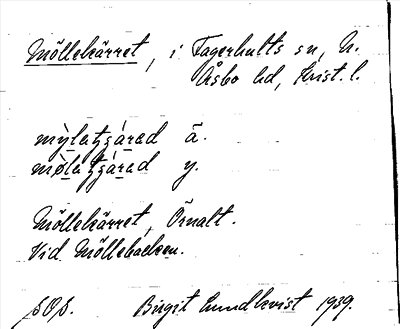 Möllekärret, i Fagerhults sn, N.
Åsbo hd, Krist. l.
mỳlatʒárad ä.
mølatʒárad y.
Möllekärret, Örnalt.
Vid Möllebacken.
SOS. Birgit Lundkvist 1939.